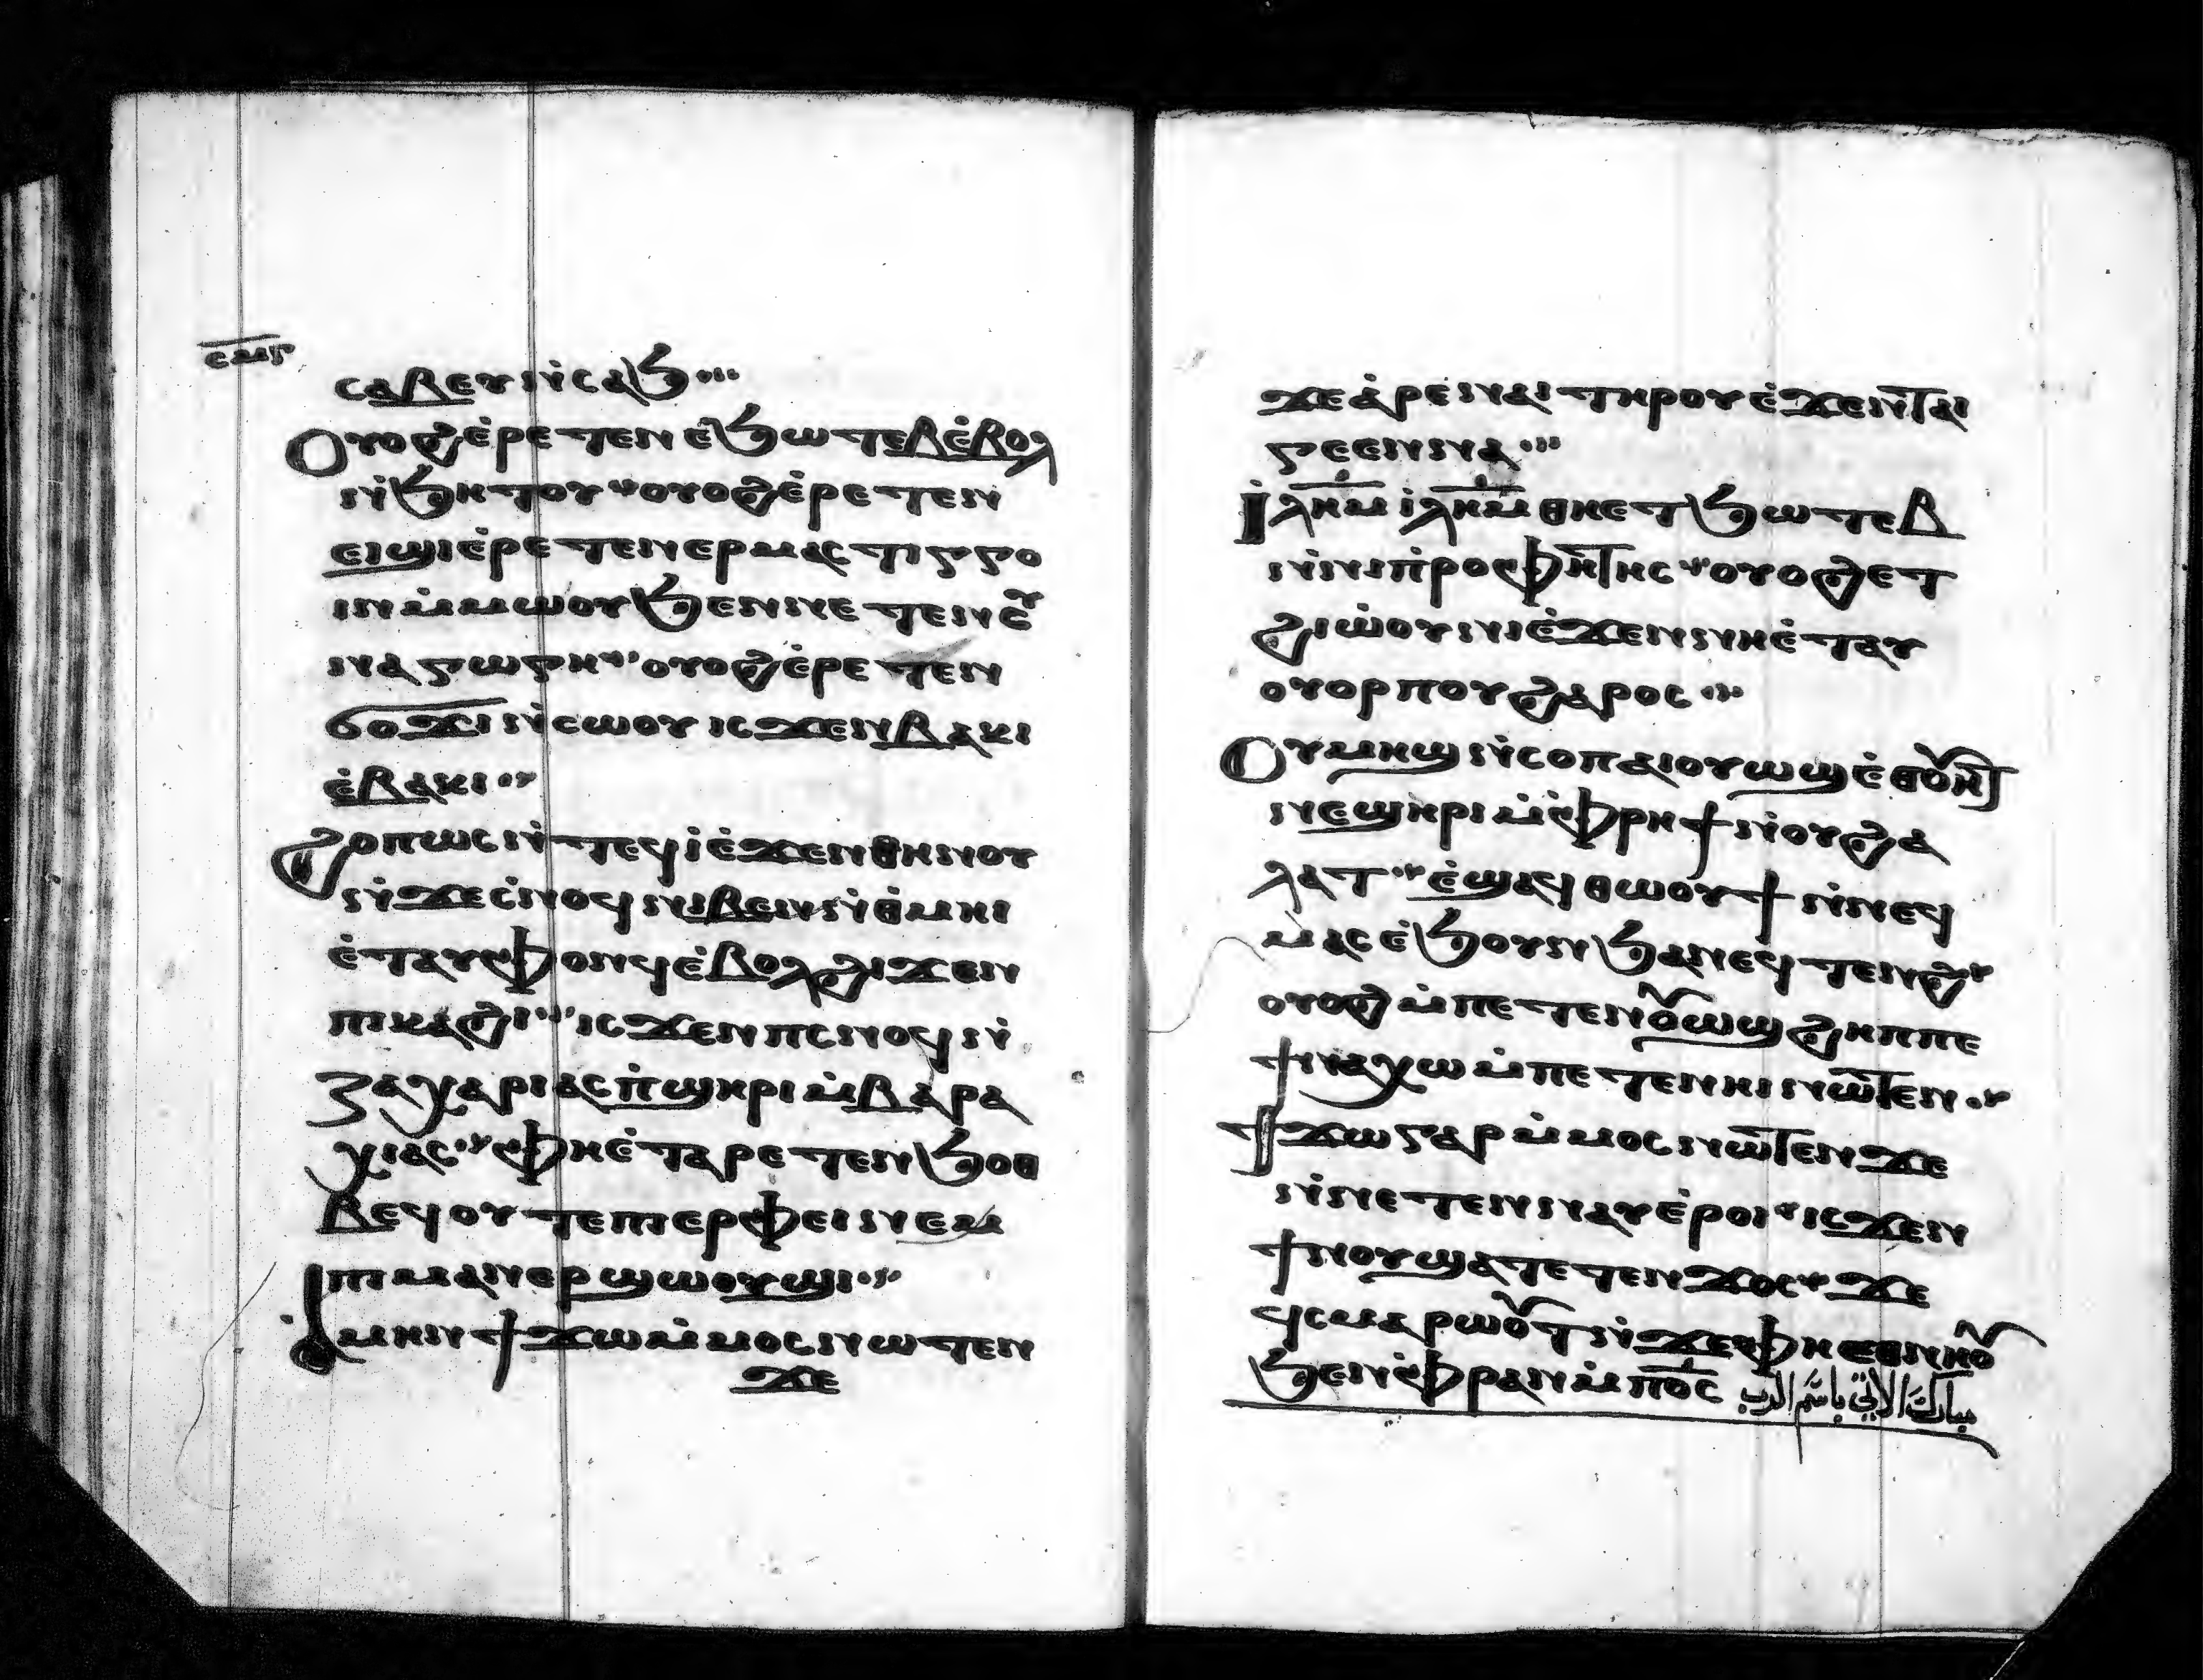 ⲥⲙⲋ
ⲥⲁⲃⲉⲩ ⲛ̀ⲥⲁϧ
Ⲟⲩⲟϩ ⲉ̀ⲣⲉⲧⲉⲛ ⲉ̀ϧⲱⲧⲉⲃ ⲉ̀ⲃⲟⲗ
ⲛ̀ϧⲏⲧⲟⲩ ⲟⲩⲟϩ ⲉ̀ⲣⲉⲧⲉⲛ
ⲉⲓϣⲓ ⲉ̀ⲣⲉⲧⲉⲛⲉⲣⲙⲁⲥⲧⲓⲅⲅⲟ
ⲓⲛ ⲙ̀ⲙⲱⲟⲩ ϧⲉⲛ ⲛⲉⲧⲉⲛⲥⲩ
ⲛⲁⲅⲱⲅⲏ ⲟⲩⲟϩ ⲉ̀ⲣⲉⲧⲉⲛ
ϭⲟϫⲓ ⲛ̀ⲥⲱⲟⲩ ⲓⲥϫⲉⲛ ⲃⲁⲕⲓ
ⲉ̀ⲃⲁⲕⲓ
Ϩⲟⲡⲱⲥ ⲛ̀ⲧⲉϥⲓ̀ ⲉ̀ϫⲉⲛ ⲑⲏⲛⲟⲩ
ⲛ̀ϫⲉ ⲥ̀ⲛⲟϥ ⲛⲓⲃⲉⲛ ⲛ̀ⲑ̀ⲙⲏⲓ
ⲉ̀ⲧⲁⲩⲫⲟⲛϥ ⲉ̀ⲃⲟⲗ ϩⲓϫⲉⲛ
ⲡⲓⲕⲁϩⲓ ⲓⲥϫⲉⲛ ⲡⲥⲛⲟϥ ⲛ̀
ⲍⲁⲭⲁⲣⲓⲁⲥ ⲡ̀ϣⲏⲣⲓ ⲙ̀ⲃⲁⲣⲁ
ⲭⲓⲁⲥ ⲫⲏ ⲉ̀ⲧⲁⲣⲉⲧⲉⲛϧⲟⲑ
ⲃⲉϥ ⲟⲩⲧⲉ ⲡⲓⲉⲣⲫⲉⲓ ⲛⲉⲙ
ⲡⲓⲙⲁⲛⲉⲣϣⲱⲟⲩϣⲓ
Ⲁ̀ⲙⲏⲛ ϯϫⲱ ⲙ̀ⲙⲟⲥ ⲛⲱⲧⲉⲛ
ϫⲉ
ϫⲉ ⲁ̀ⲣⲉ ⲛⲁⲓ ⲧⲏⲣⲟⲩ ⲉ̀ϫⲉⲛ ⲧⲁⲓ
ⲅⲉⲉⲛⲛⲁ
Ⲓⲗⲏⲙ ⲓⲗⲏⲙ ⲑⲏ ⲉⲧϧⲱⲧⲉⲃ
ⲛ̀ⲛⲓⲡ̀ⲣⲟⲫⲏⲧⲏⲥ ⲟⲩⲟϩ ⲉⲧ
ϩⲓⲱ̀ⲟⲩⲛⲓ ⲉ̀ϫⲉⲛ ⲛⲏ ⲉ̀ⲧⲁⲩ
ⲟⲩⲟⲣⲡⲟⲩ ϩⲁⲣⲟⲥ
Ⲟⲩⲙⲏϣ ⲛ̀ⲥⲟⲡ ⲁⲓⲟⲩⲱϣ ⲉ̀ⲑⲟⲩⲏⲧ
ⲛⲉϣⲏⲣⲓ ⲙ̀ⲫⲣⲏϯ ⲛ̀ⲟⲩϩⲁ
ⲗⲁⲧ ⲉ̀ϣⲁϥⲑⲱⲟⲩϯ ⲛ̀ⲛⲉϥ
ⲙⲁⲥ ⲉ̀ϧⲟⲩⲛ ϧⲁ ⲛⲉϥⲧⲉⲛϩ
ⲟⲩⲟϩ ⲙ̀ⲡⲉⲧⲉⲛⲟⲩⲱϣ ϩⲏⲡⲡⲉ
ϯⲛⲁⲭⲱ ⲙ̀ⲡⲉⲧⲉⲛⲏⲓ ⲛⲱⲧⲉⲛ
Ϯϫⲱ ⲅⲁⲣ ⲙ̀ⲙⲟⲥ ⲛⲱⲧⲉⲛ ϫⲉ
ⲛ̀ⲛⲉⲧⲉⲛⲛⲁⲩ ⲉ̀ⲣⲟⲓ ⲓⲥϫⲉⲛ
ϯⲛⲟⲩ ϣⲁⲧⲉⲧⲉⲛϫⲟⲥ ϫⲉ
ϥⲥⲙⲁⲣⲱⲟⲩⲧ ⲛ̀ϫⲉ ⲫⲏ ⲉⲑⲛⲏⲟⲩ
ϧⲉⲛ ⲫ̀ⲣⲁⲛ ⲙ̀ⲡⲟ̅ⲥ̅ مبارك الاتي باسم الرب